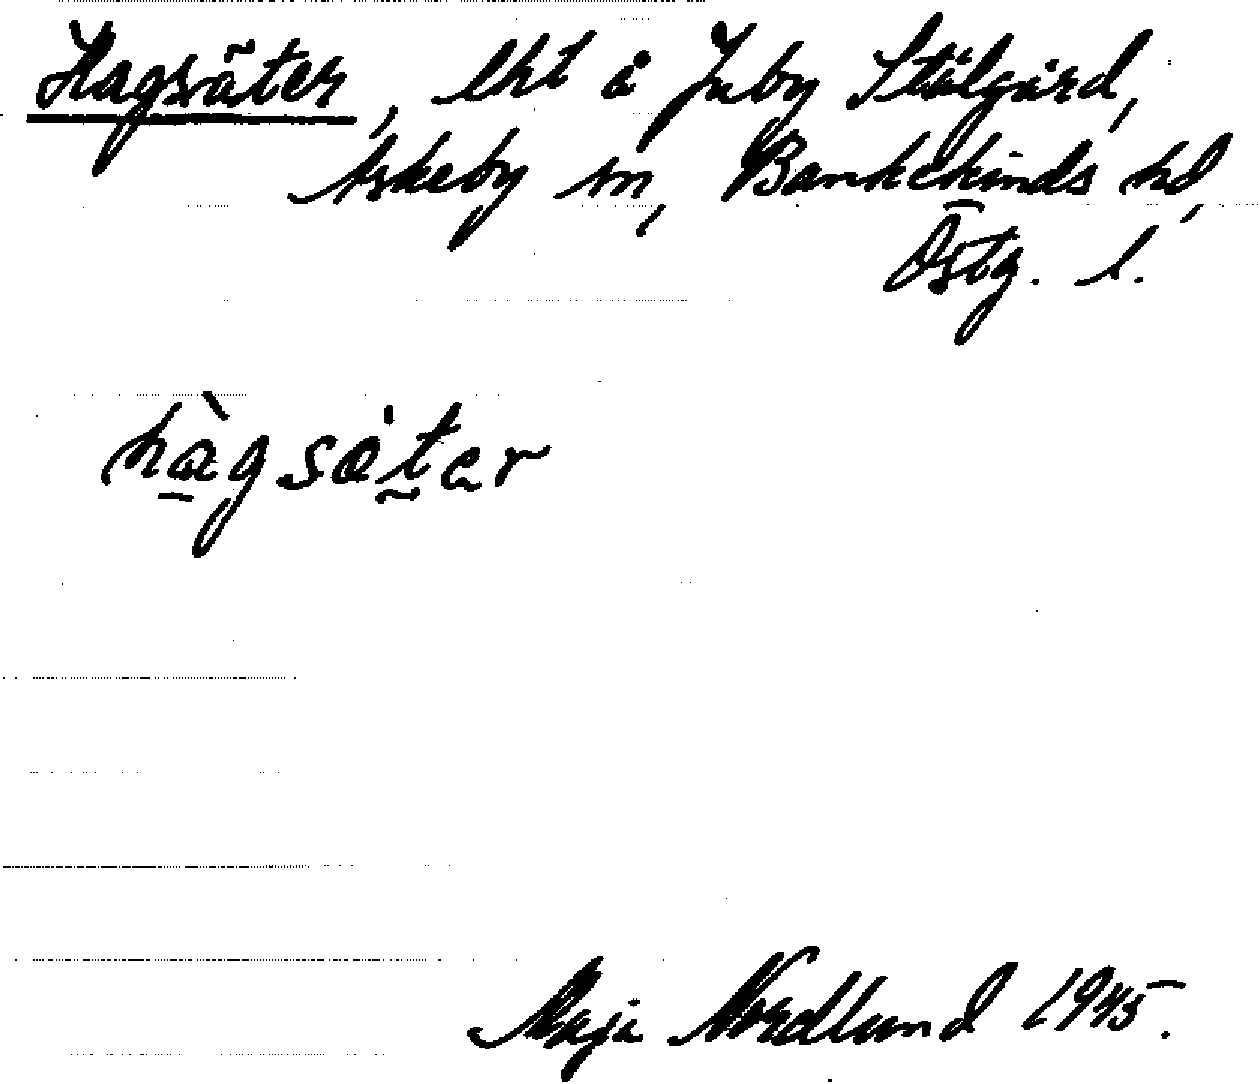 Hagsäter, lht å Juby Stålgård,
Askeby sn, Bankekinds hd,
Östg. l.
hàgsätər
Maja Nordlund 1945.